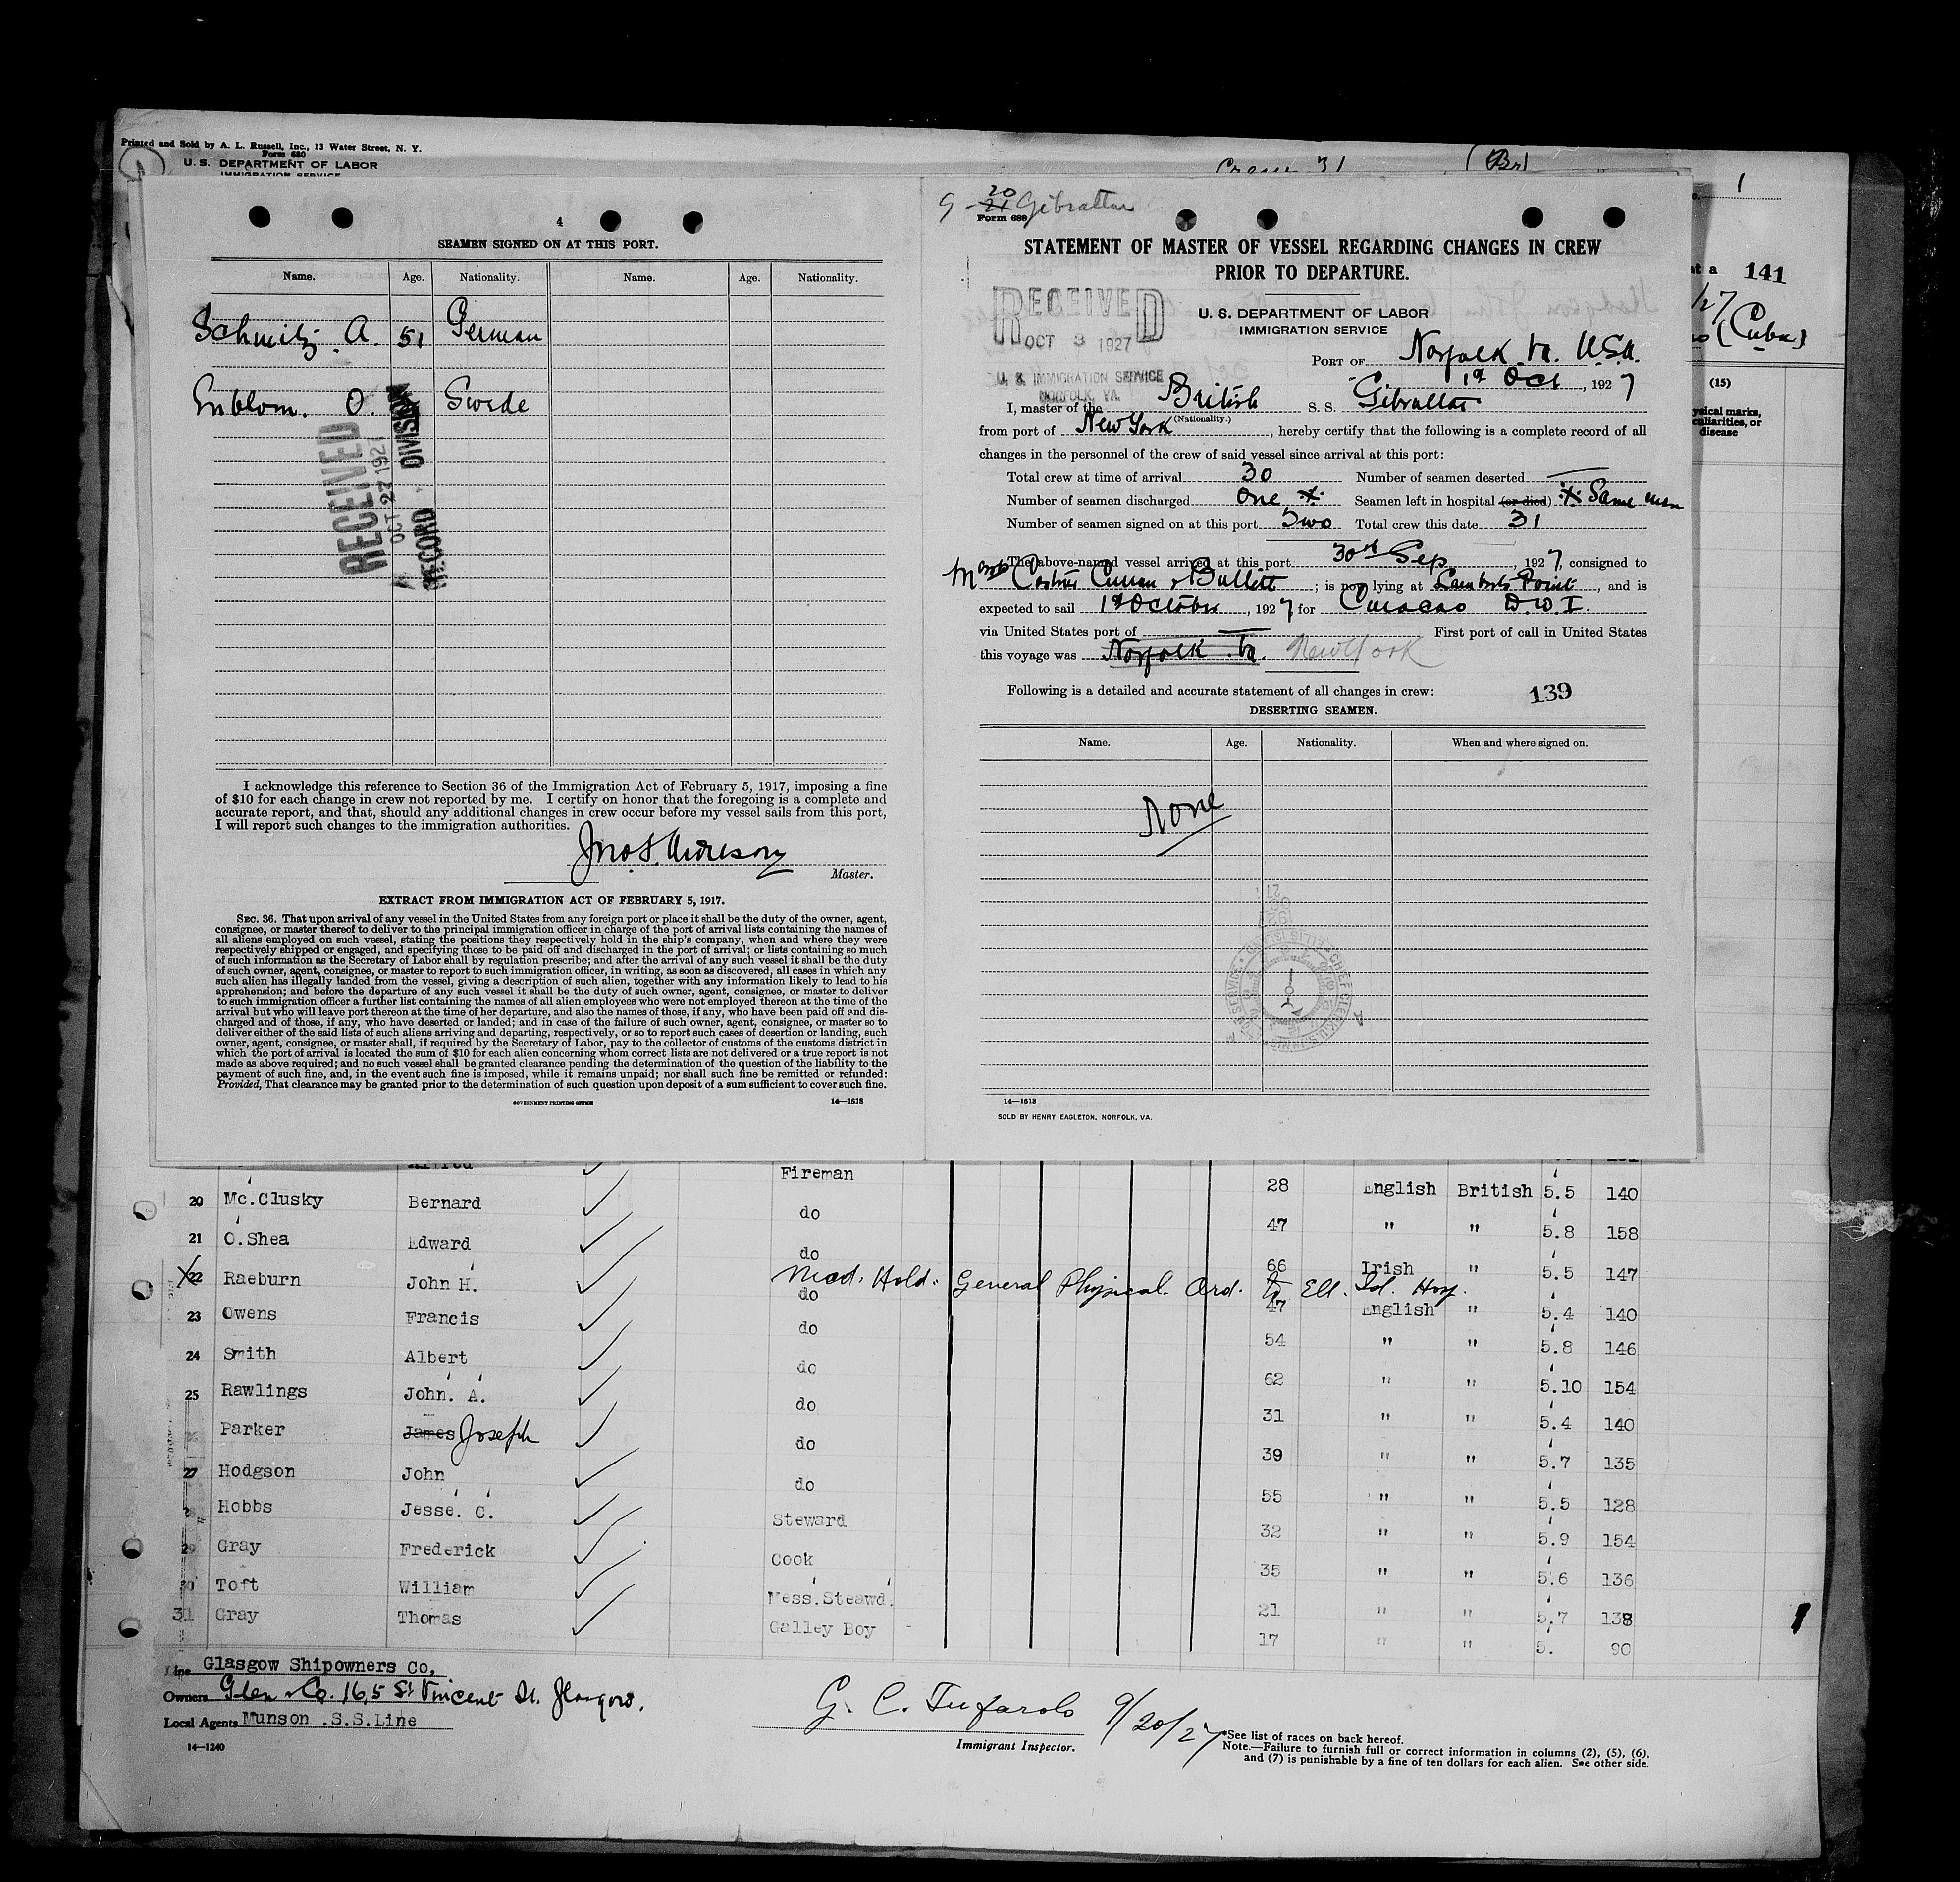 Printed and Sold by A. L. Russell, Inc., 13 Water Street, N. Y.
Form 680
U. S. DEPARTMENT OF LABOR
IMMIGRATION SERVICE
Crew 31 (Br)
1
at a 141
/27
(Cuba)
(15)
4
SEAMEN SIGNED ON AT THIS PORT.
Name. Age. Nationality. Name. Age. Nationality.
Schmitz A. 51 German
Enblom. O. Swede
RECEIVED
OCT 27 1927
RECORD DIVISION
I acknowledge this reference to Section 36 of the Immigration Act of February 5, 1917, imposing a fine
of $10 for each change in crew not reported by me. I certify on honor that the foregoing is a complete and
accurate report, and that, should any additional changes in crew occur before my vessel sails from this port,
I will report such changes to the immigration authorities.
Master.
EXTRACT FROM IMMIGRATION ACT OF FEBRUARY 5, 1917.
SEC. 36. That upon arrival of any vessel in the United States from any foreign port or place it shall be the duty of the owner, agent,
consignee, or master thereof to deliver to the principal immigration officer in charge of the port of arrival lists containing the names of
all aliens employed on such vessel, stating the positions they respectively hold in the ship's company, when and where they were
respectively shipped or engaged, and specifying those to be paid off and discharged in the port of arrival; or lists containing so much
of such information as the Secretary of Labor shall by regulation prescribe; and after the arrival of any such vessel it shall be the duty
of such owner, agent, consignee, or master to report to such immigration officer, in writing, as soon as discovered, all cases in which any
such alien has illegally landed from the vessel, giving a description of such alien, together with any information likely to lead to his
apprehension; and before the departure of any such vessel it shall be the duty of such owner, agent, consignee, or master to deliver
to such immigration officer a further list containing the names of all alien employees who were not employed thereon at the time of the
arrival but who will leave port thereon at the time of her departure, and also the names of those, if any, who have been paid off and dis-
charged and of those, if any, who have deserted or landed; and in case of the failure of such owner, agent, consignee, or master so to
deliver either of the said lists of such aliens arriving and departing, respectively, or so to report such cases of desertion or landing, such
owner, agent, consignee, or master shall, if required by the Secretary of Labor, pay to the collector of customs of the customs district in
which the port of arrival is located the sum of $10 for each alien concerning whom correct lists are not delivered or a true report is not
made as above required; and no such vessel shall be granted clearance pending the determination of the question of the liability to the
payment of such fine, and, in the event such fine is imposed, while it remains unpaid; nor shall such fine be remitted or refunded:
Provided, That clearance may be granted prior to the determination of such question upon deposit of a sum sufficient to cover such fine.
GOVERNMENT PRINTING OFFICE 14—1613
G - 20 21 Gibraltar
Form 689
STATEMENT OF MASTER OF VESSEL REGARDING CHANGES IN CREW
PRIOR TO DEPARTURE.
RECEIVED
OCT 3 1927
U. S. IMMIGRATION SERVICE
NORFOLK, VA.
U. S. DEPARTMENT OF LABOR
IMMIGRATION SERVICE
PORT OF Norfolk Va. U.S.A.
1st Oct, 1927
I, master of the British S. S. Gibraltar
(Nationality.)
from port of New York, hereby certify that the following is a complete record of all
changes in the personnel of the crew of said vessel since arrival at this port:
Total crew at time of arrival 30 Number of seamen deserted —
Number of seamen discharged One * Seamen left in hospital (or died) * Same man
Number of seamen signed on at this port Two Total crew this date 31
The above-named vessel arrived at this port 30th Sep, 1927, consigned to
Curran & Bullitt; is now lying at Lamberts Point, and is
expected to sail 1st October, 1927 for Curacao D.W.I.
via United States port of — First port of call in United States
this voyage was Norfolk Va. New York
Following is a detailed and accurate statement of all changes in crew: 139
DESERTING SEAMEN.
Name. Age. Nationality. When and where signed on.
None
14—1613
SOLD BY HENRY EAGLETON, NORFOLK, VA.
physical marks,
peculiarities, or
disease
Alfred Fireman
20 Mc.Clusky Bernard do 28 English British 5.5 140
21 O.Shea Edward do 47 " " 5.8 158
22 Raeburn John H. do 66 Irish " 5.5 147
Med. Hold. General Physical. Ord. to Ell. Isl. Hosp.
23 Owens Francis do 47 English " 5.4 140
24 Smith Albert do 54 " " 5.8 146
25 Rawlings John. A. do 62 " " 5.10 154
26 Parker James Joseph do 31 " " 5.4 140
27 Hodgson John do 39 " " 5.7 135
28 Hobbs Jesse. C. Steward 55 " " 5.5 128
29 Gray Frederick Cook 32 " " 5.9 154
30 Toft William Mess.Steawd. 35 " " 5.6 136
31 Gray Thomas Galley Boy 21 " " 5.7 138
17 " " 5. 90
Line Glasgow Shipowners Co,
Owners Glen & Co. 165 St Vincent St. Glasgow.
Local Agents Munson .S.S.Line
14—1240
G. C. Tufarolo 9/20/27
Immigrant Inspector.
*See list of races on back hereof.
Note.—Failure to furnish full or correct information in columns (2), (5), (6),
and (7) is punishable by a fine of ten dollars for each alien. See other side.